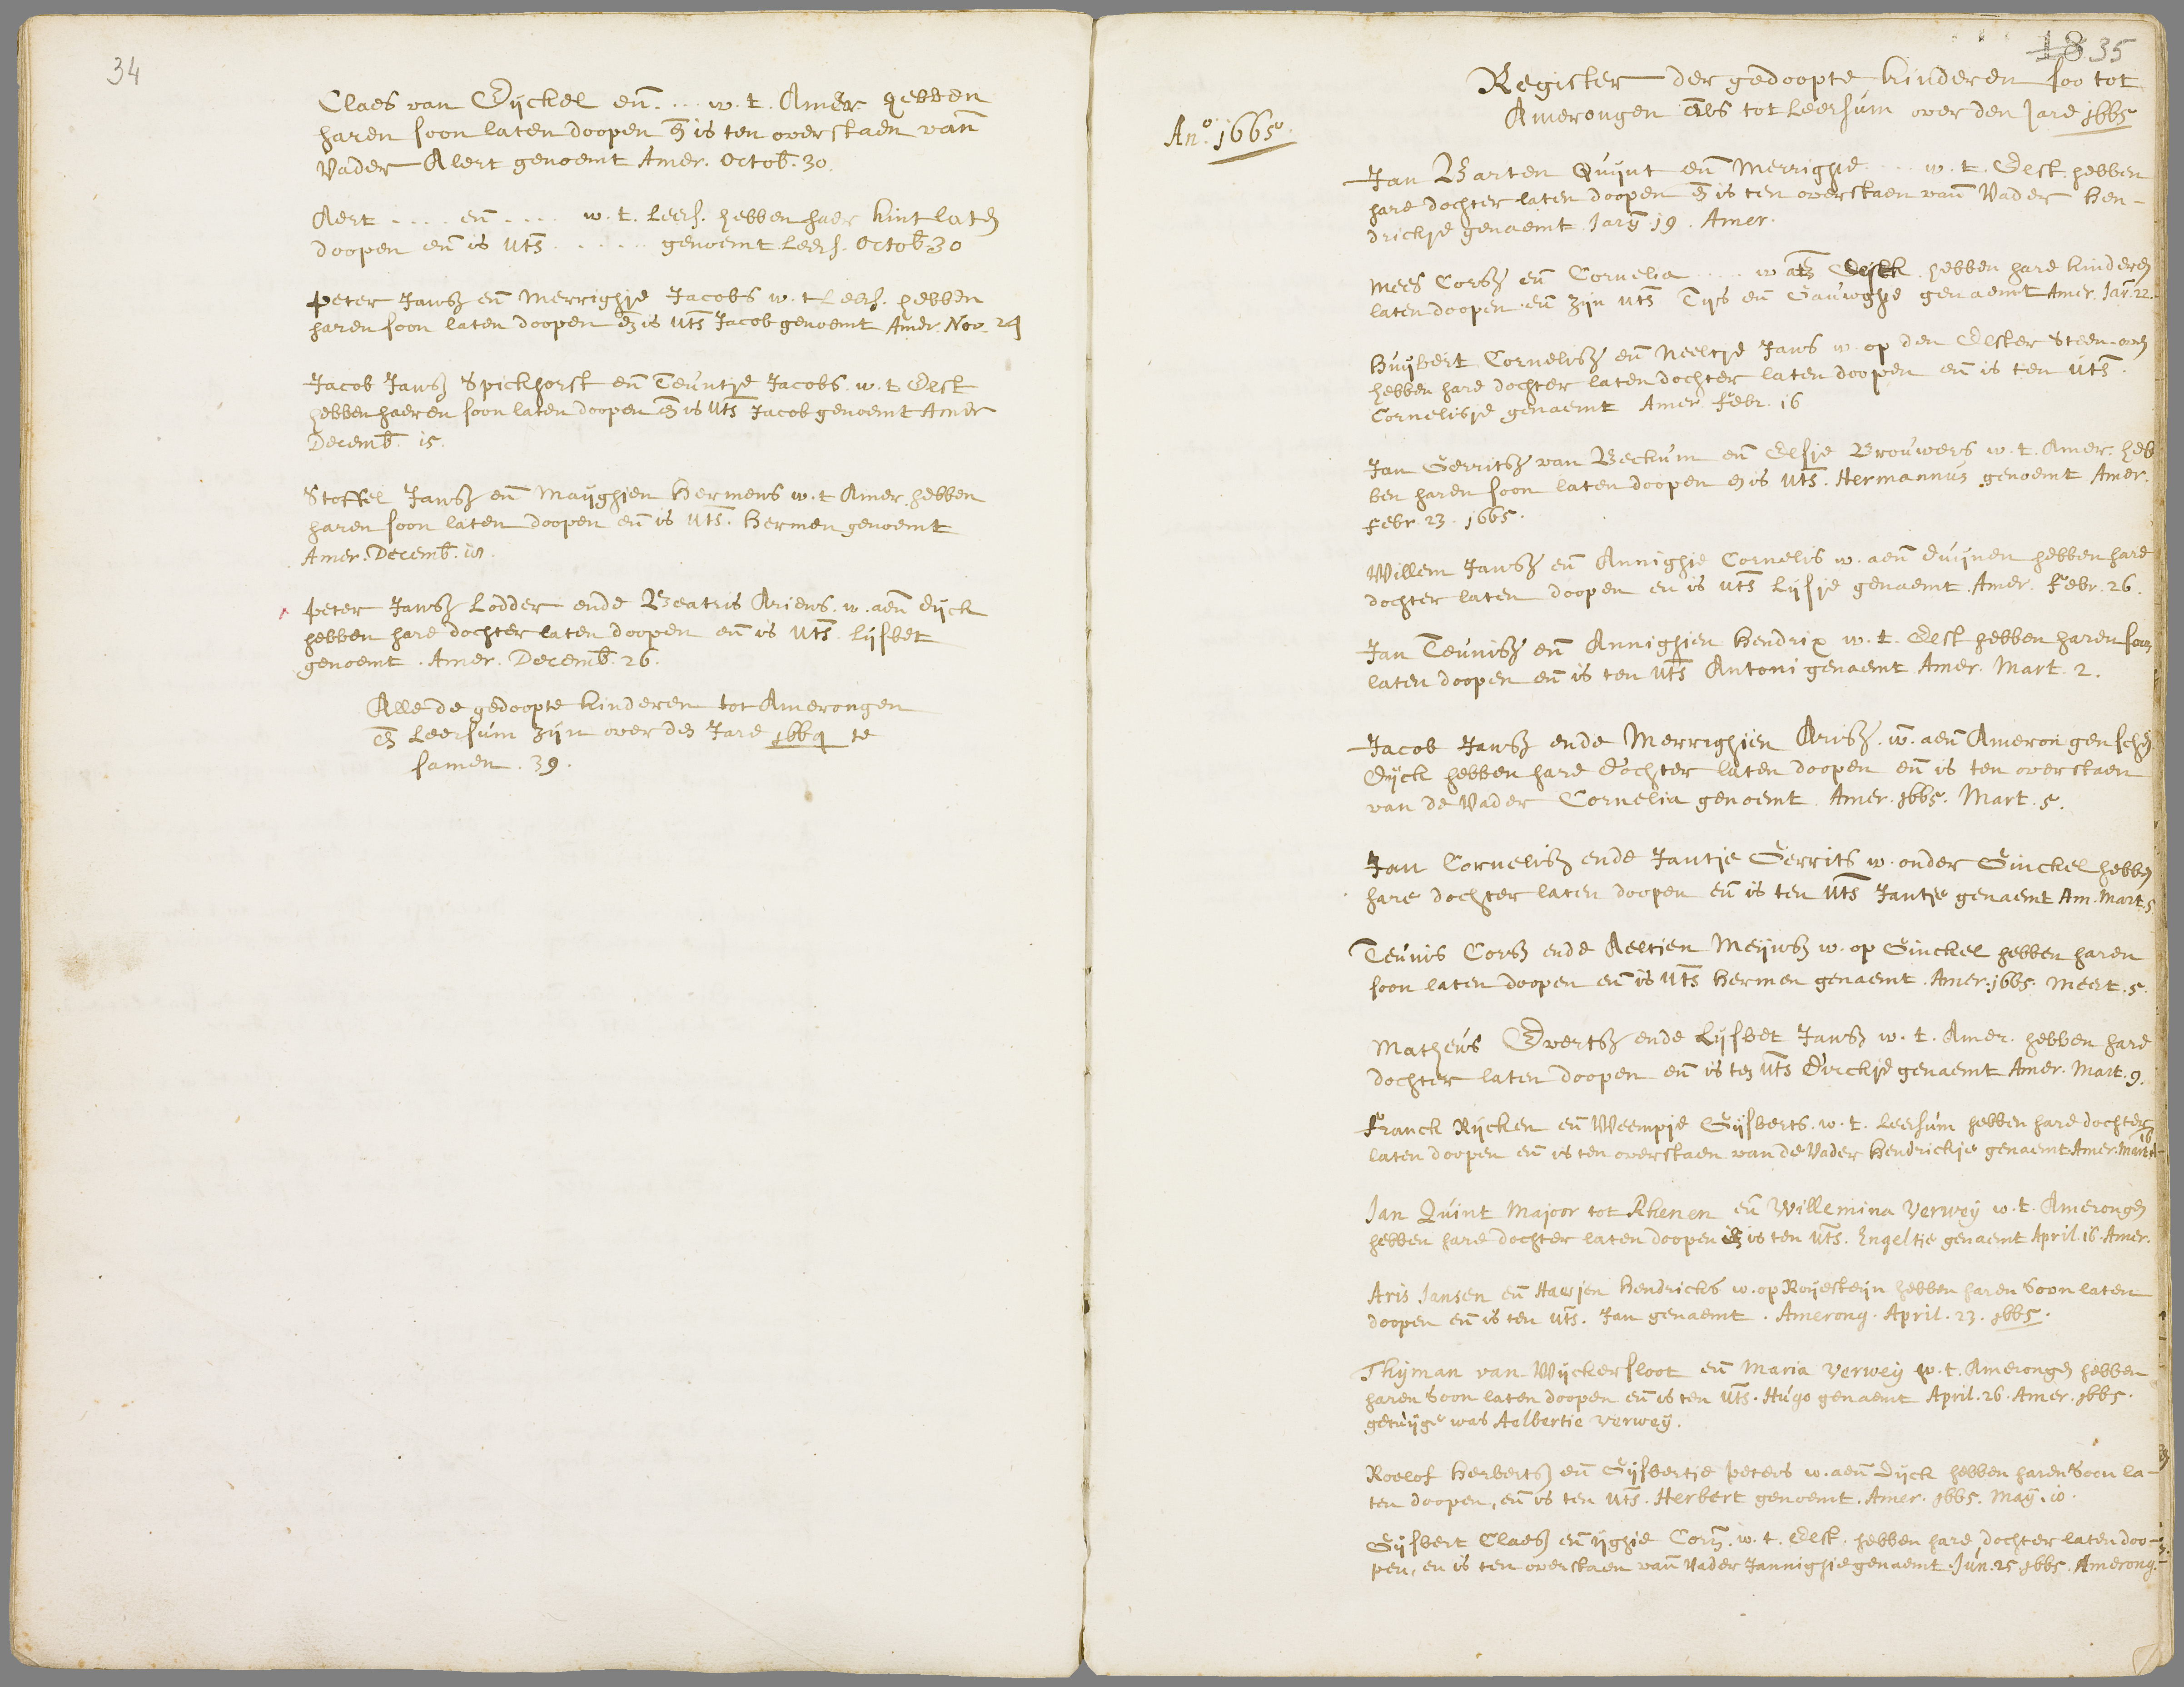 34
Claes van Eijckel eñ .... w. t. Amer hebben
haren soon laten doopen eñ is ten overstaen vañ
Vader Alert genoemt Amer. Octob. 30.
Aert .... eñ .... w. t. Leers. hebben haer kint laten
doopen eñ is uts ...... genoemt Leers. Octob 30
Peter Jansz eñ Merrighje Jacobs w. t Leers. hebben
haren soon laten doopen eñ is uts Jacob genoemt Amer. Nov. 24
Jacob Jansz Spickhorst eñ Teuntje Jacobs. w. t. Elst
hebben haeren soon laten doopen eñ is uts Jacob genoemt Amer
Decemb. 15.
Stoffel Jansz eñ Maijghien Hermens w. t Amer. hebben
haren soon laten doopen eñ is uts. Hermen genoemt
Amer. Decemb. 18.
Peter Jansz Lodder ende Beatris Ariens. w. aeñ dijck
hebben hare dochter laten doopen eñ is uts lijsbet
genoemt. Amer. Decemb. 26.
Alle de gedoopte kinderen tot Amerongen
eñ Leersum zijn over den Jare 1664 te
samen. 39.
18 35
Register der gedoopte kinderen soo tot
Amerongen als tot Leersum over den Jare 1665
An.º 1665º.
Jan Barten Quijnt eñ Merrighje .... w. t. Elst. hebben
hare dochter laten doopen eñ is ten overstaen vañ Vader Hen-
drickje genaemt. Jarÿ 19. Amer.
Mees Corsz eñ Cornelia ..... w Elst. hebben hare kinderen
laten doopen eñ zijn uts Tijs eñ Gauwghje genaemt Amer. Jar. 22.
Huijbert Cornelisz eñ Neeltje Jans w. op den Elster Steen-oven
hebben hare dochter laten dochter laten doopen eñ is ten uts.
Cornelisje genaemt Amer. Febr. 16
Jan Gerritsz van Beckum eñ Elsje Brouwers w. t. Amer. heb
ben haren soon laten doopen eñ is uts. Hermannus genoemt Amer.
Febr. 23. 1665.
Willem Jansz eñ Annighje Cornelis w. aeñ duijnen hebben hare
dochter laten doopen en is uts Lijsje genaemt. Amer. Febr. 26.
Jan Teunisz eñ Annighien Hendrix w. t. Elst hebben haren soon
laten doopen eñ is ten uts Antoni genaemt Amer. Mart. 2.
Jacob Jansz ende Merrighien Arisz. w. aeñ Amerongenschen
Dijck hebben hare dochter laten doopen eñ is ten overstaen
van de Vader Cornelia genoemt. Amer. 1665. Mart. 5.
Jan Cornelisz ende Jantje Gerrits w. onder Ginckel hebben
hare dochter laten doopen eñ is ten uts Jantje genaemt Am. Mart. 5
Teunis Corsz ende Aeltien Meijnsz w. op Ginckel hebben haren
soon laten doopen eñ is uts Hermen genaemt. Amer. 1665. Meert. 5.
Matheus Evertsz ende Lijsbet Jansz w. t. Amer. hebben hare
dochter laten doopen eñ is ten uts Dirckje genaemt Amer. Mart. 9.
Franck Rijcken eñ Weempje Gijsberts. w. t. Leersum hebben hare dochter
laten doopen eñ is ten overstaen van de Vader Hendrickje genaemt Amer. Mart. 16
Jan Quint Majoor tot Rhenen eñ Willemina Verweij w. t. Amerongen
hebben hare dochter laten doopen eñ is ten uts. Engeltje genaemt April. 16. Amer.
Aris Jansen eñ Hasjen Hendricks w. op Roijesteijn hebben haren Soon laten
doopen eñ is ten uts. Jan genaemt. Amerong. April. 23. 1665.
Thijman van Wijckersloot eñ Maria Verweij w. t. Amerongen hebben
haren Soon laten doopen eñ is ten uts. Hugo genaemt April. 26. Amer. 1665.
getuijge was Aelbertie Verweij.
Roelof Herbertsz eñ Gijsbertje Peters w. aeñ Dijck hebben haren Soon la-
ten doopen, eñ is ten uts. Herbert genoemt. Amer. 1665. Maÿ. 10.
Gijsbert Claesz eñ ijghje Corz. w. t. Elst. hebben hare dochter laten doo-
pen, en is ten overstaen vañ Vader Jannighje genaemt Jun. 25 1665. Amerong.